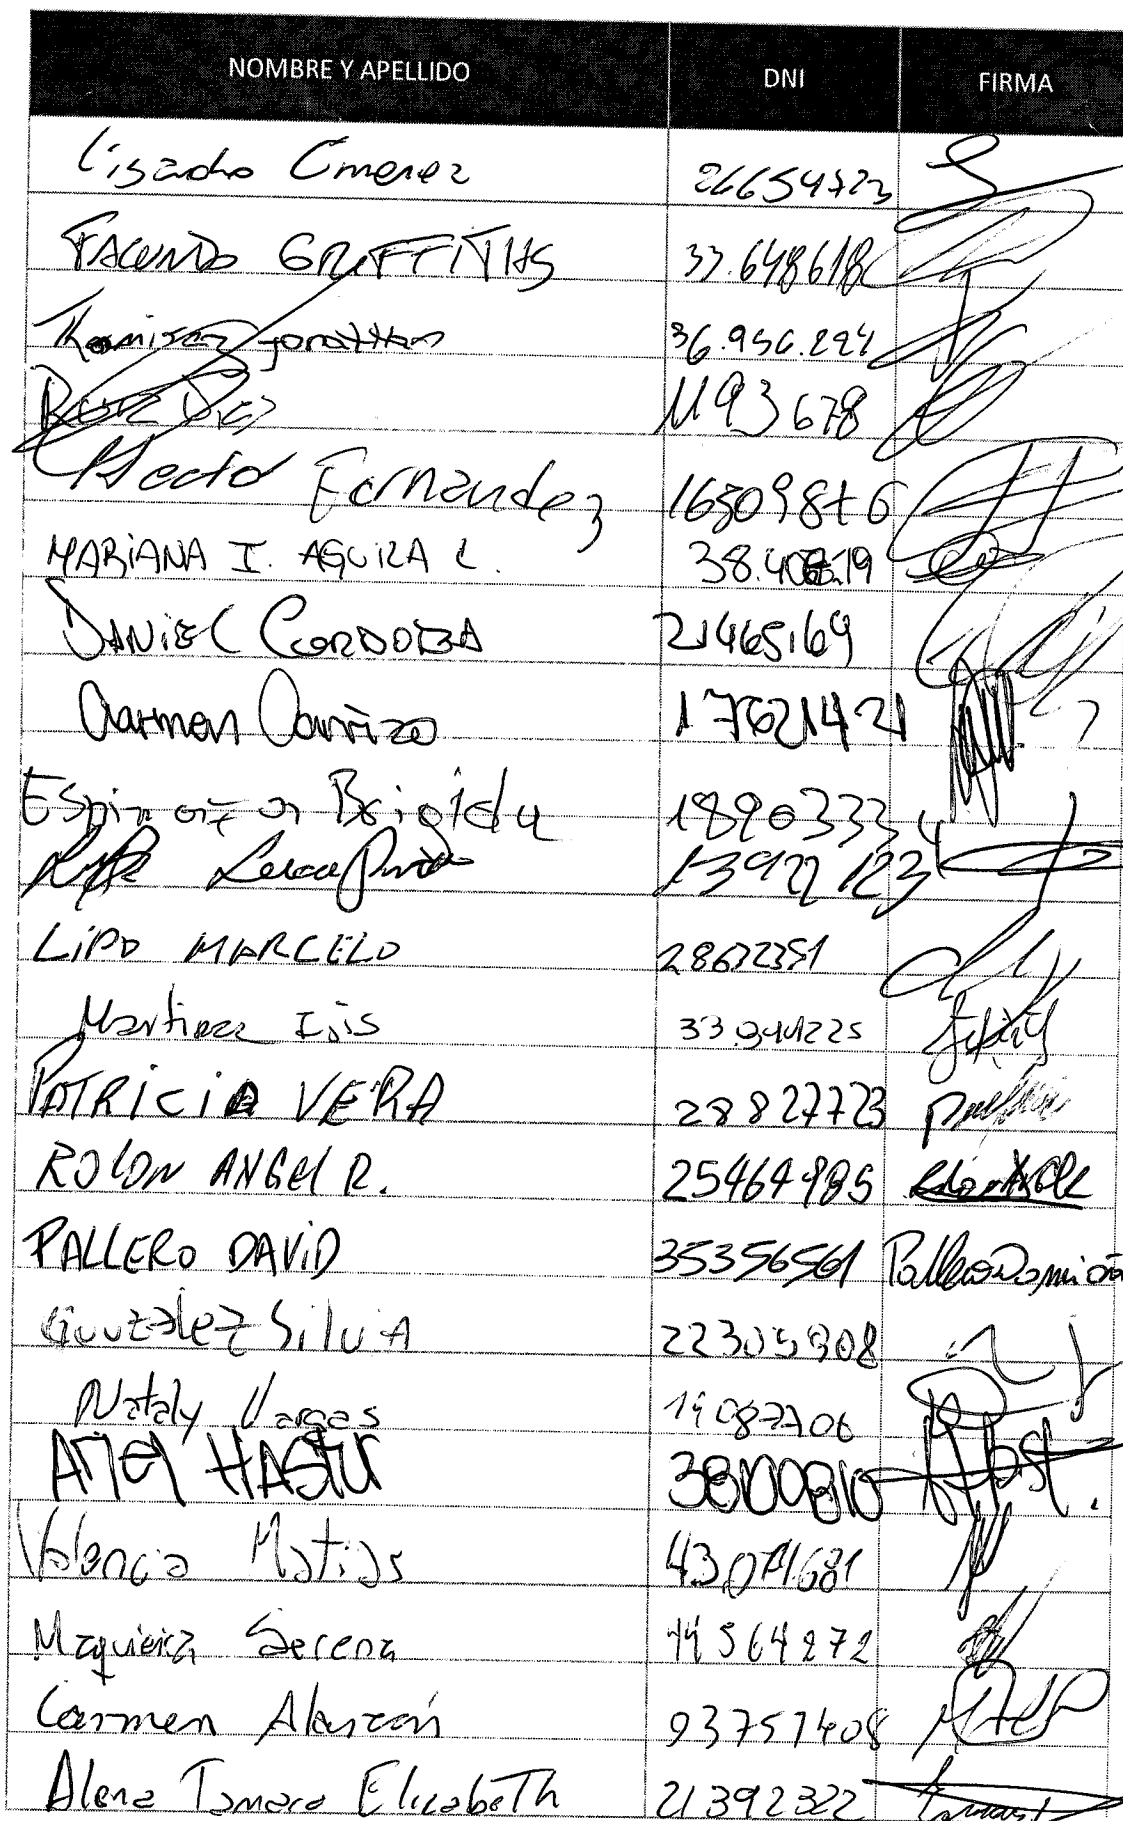 NOMBRE Y APELLIDO DNI FIRMA
Lisandro Cmenez 26654723
FACUNDO GRIFFITHS 33.648618
Ramirez Jonathan 36.956.224
1193678
Hector Fernandez 16509876
MARIANA I. AGUILA C. 38.406.19
DANIEL CORDOBA 21465169
Carmen Carrizo 17621421
Espinoza Brigida 18903334
13922123
LIPO MARCELO 28632351
Martinez Isis 33.941225
PATRICIA VERA 28827723
ROLON ANGEL R. 25464985
PALLERO DAVID 35356561 Pallero Damián
González Silvia 22305908
Nataly Vargas 19087706
ARIEL HASTU 38100810
Valencia Matias 43.071.681
Maquieira Serena 44564272
Carmen Alarcón 93757408
Alena Tamara Elizabeth 21392322